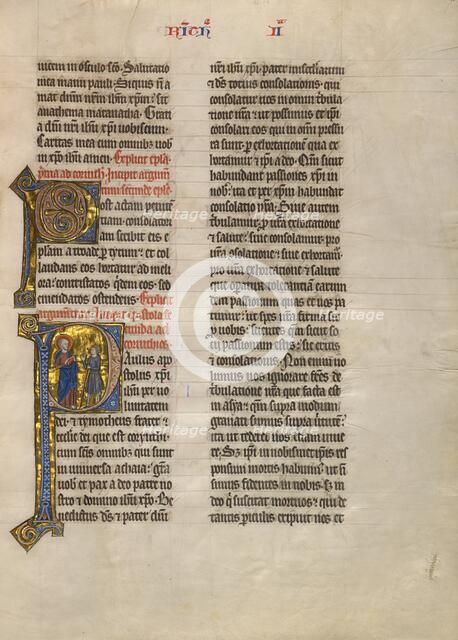 II
uicem in osculo sc̄o. Salutatio
mea manu pauli. Siquis n̄ a
mat dn̄m nr̄m ihm̄ xp̄m: sit
anathema maranatha. Grati
a dn̄i nr̄i ihū xp̄i uobiscum.
Caritas mea cum omnibus uob
in xp̄o ihū amen. Explicit ep̄la
p̄ma ad corinth̄. Incipit argum̄
secunde ep̄le
Post actam penitē
tiam consolatoriā
am scribit eis e
pl̄am a troade p̄ tytum: et col
laudans eos hortatur ad meli
ora: contristatos quidem eos s;
emendatos ostendens. Explicit
argum̄tū
cūda ad
corinthios
Paulus apo
stolus xp̄i
ihū p̄ uo
luntatem
dei: et tymotheus frater:
ecclesie dei que est corinthi:
cum sc̄is omnibus qui sunt
in uniuersa achaia: gr̄a
uob et pax a deo patre no
stro et domino ihū xp̄o. Be
nedictus ds̄ et pater dn̄i
nr̄i ihū xp̄i: pater misc̄diarum
et ds̄ totius consolationis: qui
consolatur nos in omni tribula
tione nr̄a: ut possimus et ipi
consolari eos qui in omni pressu
ra sunt: p̄ exhortationē qua ex
hortamur et ip̄i a deo. Qm̄ sicut
habundant passiones xp̄i in
nob: ita et per xp̄m habundat
consolatio nr̄a. Siue autem
tribulamur: p̄ ur̄a exhortatione
et salute: siue consolamur: pro
ur̄a consolatione: siue exhortamur
pro ur̄a exhortatione et salute
que operatur tolerantiam earū
dem passionum quas et nos pa
timur: ut spes nr̄a firma sit
p̄ uobis: scientes qm̄ sicut so
cii passionum estis: sic eritis
et consolationis. Non enim uo
lumus uos ignorare fr̄es de
tribulatione nr̄a que facta est
in asya: qm̄ supra modum
grauati sumus supra uirtutē:
ita ut tederet nos etiam uiue
re. S; ip̄i in nobismetip̄is res
ponsum mortis habuim̄: ut n̄
simus fidentes in nobis: s; in
deo q̄ suscitat mortuos: qui de
tantis p̄iculis eripuit nos et
heritage images